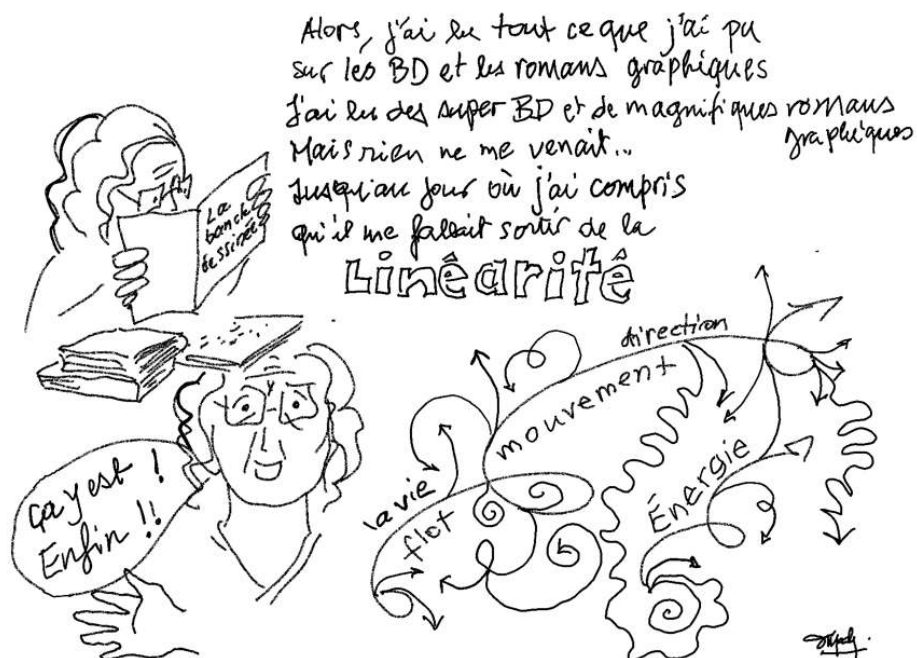 Alors, j'ai lu tout ce que j'ai pu
sur les BD et les romans graphiques
J'ai lu des super BD et de magnifiques romans
graphiques
Mais rien ne me venait...
Jusqu'au jour où j'ai compris
qu'il me fallait sortir de la
Linéarité
La
bande
dessinée
ça y est !
Enfin !!
direction
mouvement
la vie
flot
Énergie